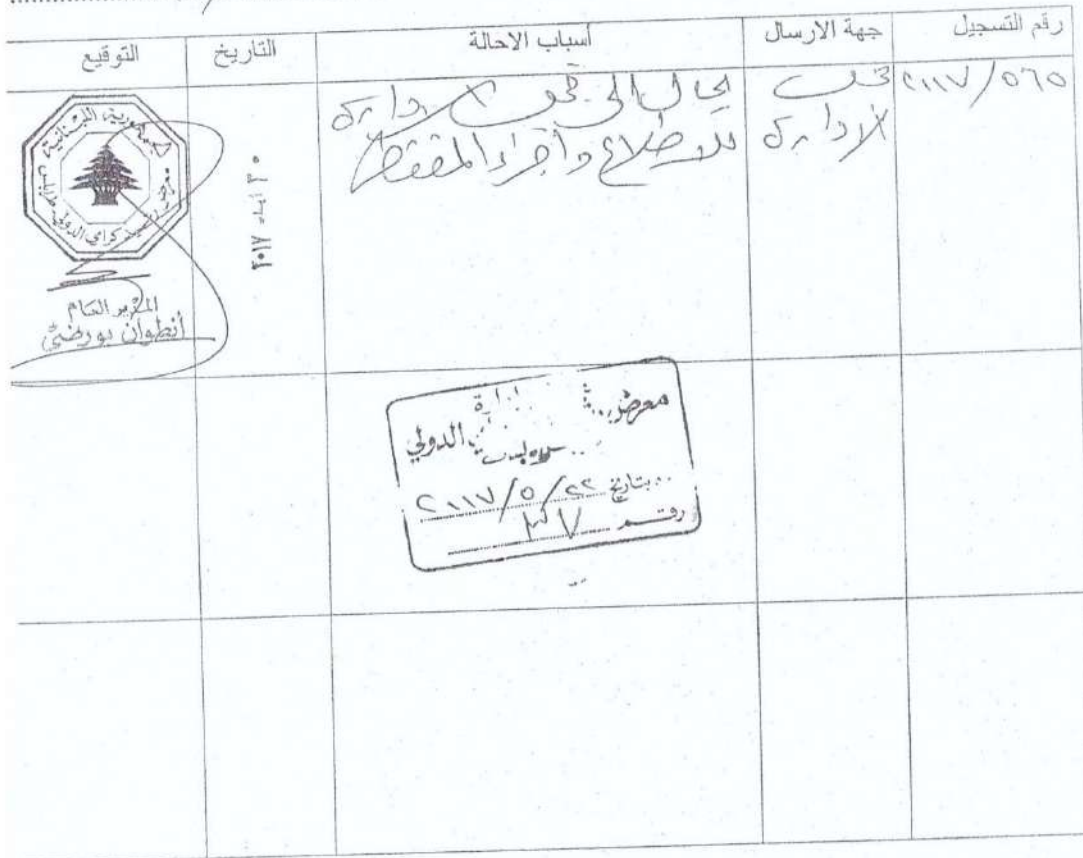 رقم التسجيل
جهة الارسال
أسباب الاحالة
التاريخ
التوقيع
٢٠١٧/٥٦٥
الادارة
يحال الى الادارة
للاطلاع واجراء المقتضى
٣٠ ايار ٢٠١٧
الجمهورية اللبنانية
معرض رشيد كرامي الدولي طرابلس
المدير العام
أنطوان بو رضى
معرض
ادارة
الدولي
بتاريخ ٢٢/٥/٢٠١٧
رقم ٣٧